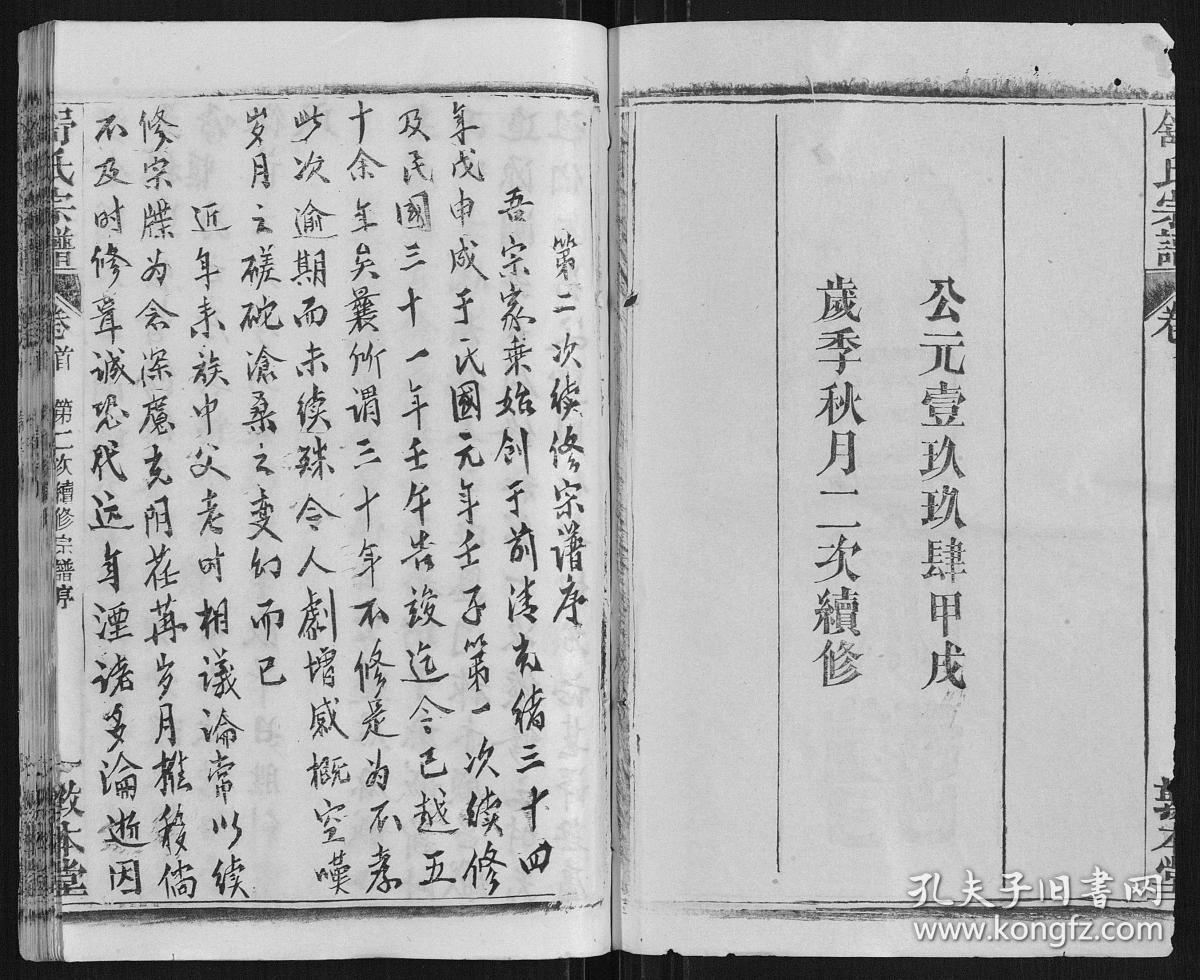 舒氏宗譜
卷
敦本堂
公元壹玖玖肆甲戌
歲季秋月二次續修
第二次续修宗谱序
吾宗家乘始创于前清光绪三十四
年戊申成于民國元年壬子第一次续修
及民國三十一年壬午告竣迄今已越五
十余年矣曩所谓三十年不修是为不孝
此次逾期而未续殊令人劇增感概空嘆
岁月之磋砣滄桑之变幻而已
近年来族中父老时相議論常以续
修宗牒为念深
光阴荏苒岁月推移倘
不及时修葺诚恐代远年湮诸多淪逝因
舒氏宗譜
卷首
第二次續修宗譜序
敦本堂
孔夫子旧书网
www.kongfz.com